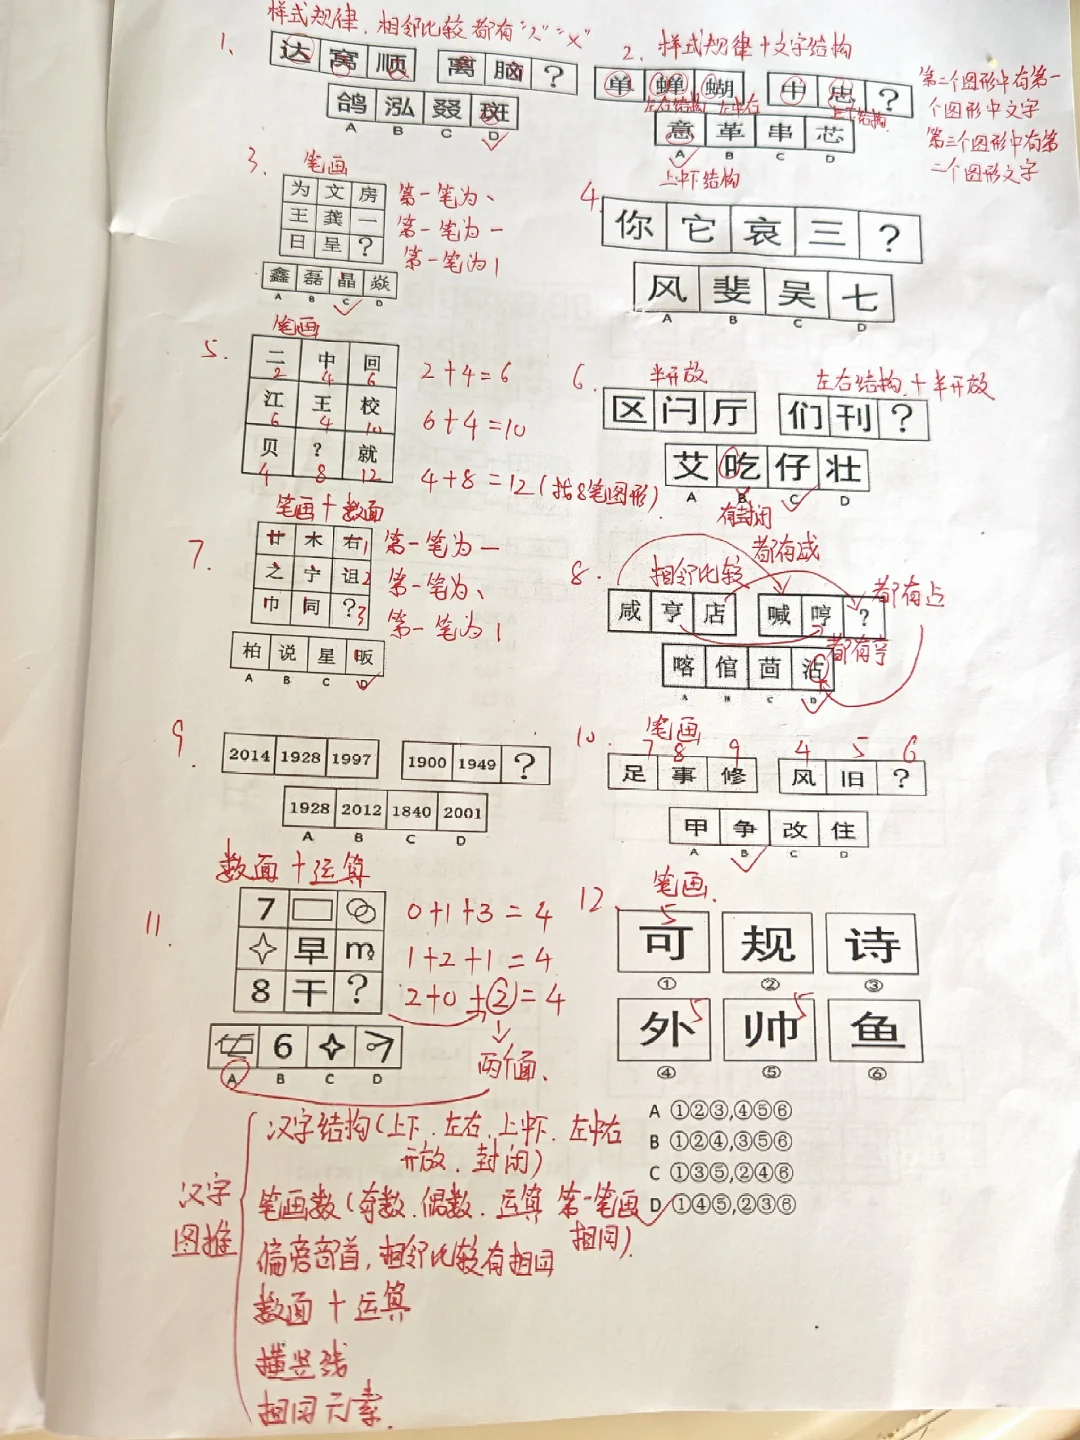 样式规律、相邻比较 都有"人""乂"
1、
达 窝 顺 离 脑 ?
鸽 泓 叕 斑
A B C D
2、样式规律+文字结构
单 蝉 蝴 中 忠 ?
左右结构 左中右 上下结构
意 革 串 芯
A B C D
上中下结构
第二个图形中有第一
个图形中文字
第三个图形中有第
二个图形文字
3、笔画
为 文 房 第一笔为丶
王 龚 一 第一笔为一
日 呈 ? 第一笔为丨
鑫 磊 晶 焱
A B C D
4、
你 它 哀 三 ?
风 斐 吴 七
A B C D
5、笔画
二 中 回
2 4 6
2+4=6
江 王 校
6 4 10
6+4=10
贝 ? 就
4 8 12
4+8=12(找8笔图形)
6、半开放 左右结构+半开放
区 闩 厅 们 刊 ?
艾 吃 仔 壮
A B C D
有封闭
7、笔画+数面
廿 木 右 1 第一笔为一
之 宁 诅 2 第一笔为、
巾 同 ? 3 第一笔为丨
柏 说 星 昄
A B C D
8、相邻比较 都有咸
都有占
咸 亨 店 喊 哼 ?
都有亨
喀 倌 茴 沾
A B C D
9、
2014 1928 1997 1900 1949 ?
1928 2012 1840 2001
A B C D
10、笔画
7 8 9 4 5 6
足 事 修 风 旧 ?
甲 争 改 住
A B C D
数面+运算
11、
7 0+1+3=4
早 m 1+2+1=4
8 干 ? 2+0+②=4
6
A B C D
两个面、
12、笔画、
5
可 规 诗
① ② ③
5 5
外 帅 鱼
④ ⑤ ⑥
A ①②③,④⑤⑥
B ①②④,③⑤⑥
C ①③⑤,②④⑥
D ①④⑤,②③⑥
汉字
图推
汉字结构(上下、左右、上中下、左中右
开放、封闭)
笔画数(奇数、偶数、运算 第一笔画
相同)
偏旁部首,相邻比较有相同
数面+运算
横竖线
相同元素